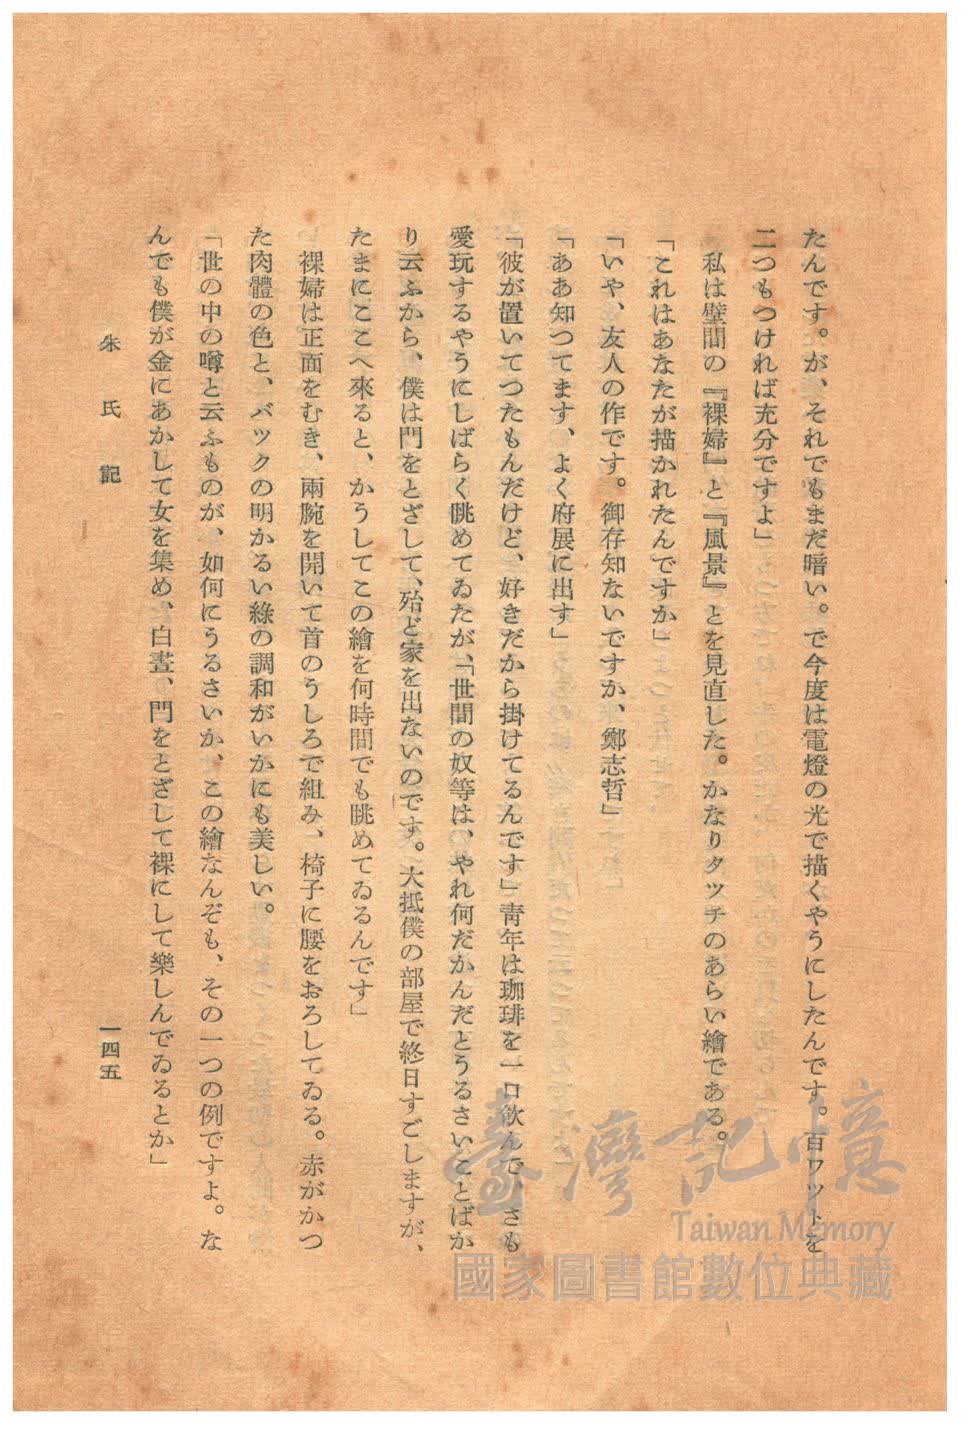 たんです。が、それでもまだ暗い。で今度は電燈の光で描くやうにしたんです。百ワットを
二つもつければ充分ですよ」
私は壁間の『裸婦』と『風景』とを見直した。かなりタツチのあらい繪である。
「これはあなたが描かれたんですか」
「いや、友人の作です。御存知ないですか、鄭志哲」
「ああ知つてます、よく府展に出す」
「彼が置いてつたもんだけど、好きだから掛けてるんです」青年は珈琲を一口飲んで、さも
愛玩するやうにしばらく眺めてゐたが、「世間の奴等は、やれ何だかんだとうるさいことばか
り云ふから、僕は門をとざして、殆ど家を出ないのです。大抵僕の部屋で終日すごしますが、
たまにここへ來ると、かうしてこの繪を何時間でも眺めてゐるんです」
裸婦は正面をむき、兩腕を開いて首のうしろで組み、椅子に腰をおろしてゐる。赤がかつ
た肉體の色と、バツクの明かるい綠の調和がいかにも美しい。
「世の中の噂と云ふものが、如何にうるさいか、この繪なんぞも、その一つの例ですよ。な
んでも僕が金にあかして女を集め、白晝、門をとざして裸にして樂しんでゐるとか」
朱氏記
一四五
臺灣記憶
Taiwan Memory
國家圖書館數位典藏